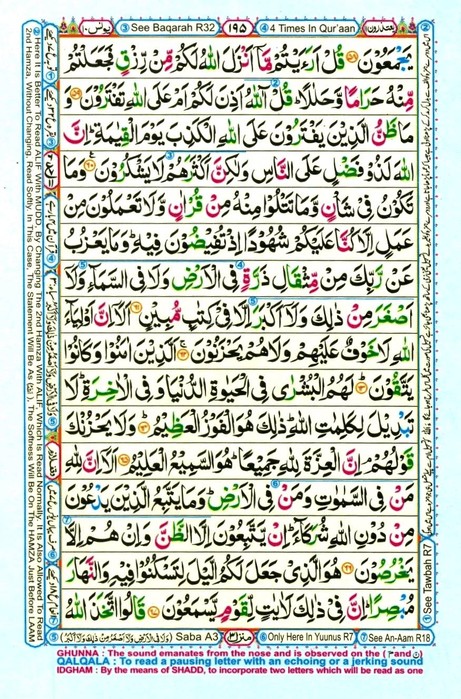 یونس ۱۰
③ See Baqarah R32
۱۹۵
④ 4 Times In Qur'aan
یعتذرون ۱۱
یَجْمَعُوْنَ ۵۸ قُلْ اَرَءَیْتُمْ مَّاۤ اَنْزَلَ اللّٰهُ لَكُمْ مِّنْ رِّزْقٍ فَجَعَلْتُمْ
مِّنْهُ حَرَامًا وَّحَلٰلًا ؕ قُلْ آٰللّٰهُ اَذِنَ لَكُمْ اَمْ عَلَی اللّٰهِ تَفْتَرُوْنَ ۵۹ وَ
مَا ظَنُّ الَّذِیْنَ یَفْتَرُوْنَ عَلَی اللّٰهِ الْكَذِبَ یَوْمَ الْقِیٰمَةِ ؕ اِنَّ
اللّٰهَ لَذُوْ فَضْلٍ عَلَی النَّاسِ وَلٰكِنَّ اَكْثَرَهُمْ لَا یَشْكُرُوْنَ ۶۰ وَمَا
تَكُوْنُ فِیْ شَاْنٍ وَّمَا تَتْلُوْا مِنْهُ مِنْ قُرْاٰنٍ وَّلَا تَعْمَلُوْنَ مِنْ
عَمَلٍ اِلَّا كُنَّا عَلَیْكُمْ شُهُوْدًا اِذْ تُفِیْضُوْنَ فِیْهِ ؕ وَمَا یَعْزُبُ
عَنْ رَّبِّكَ مِنْ مِّثْقَالِ ذَرَّةٍ فِی الْاَرْضِ وَلَا فِی السَّمَآءِ وَلَاۤ
اَصْغَرَ مِنْ ذٰلِكَ وَلَاۤ اَكْبَرَ اِلَّا فِیْ كِتٰبٍ مُّبِیْنٍ ۶۱ اَلَاۤ اِنَّ اَوْلِیَآءَ
اللّٰهِ لَا خَوْفٌ عَلَیْهِمْ وَلَا هُمْ یَحْزَنُوْنَ ۶۲ الَّذِیْنَ اٰمَنُوْا وَكَانُوْا
یَتَّقُوْنَ ۶۳ لَهُمُ الْبُشْرٰی فِی الْحَیٰوةِ الدُّنْیَا وَفِی الْاٰخِرَةِ ؕ لَا
تَبْدِیْلَ لِكَلِمٰتِ اللّٰهِ ؕ ذٰلِكَ هُوَ الْفَوْزُ الْعَظِیْمُ ۶۴ وَلَا یَحْزُنْكَ
قَوْلُهُمْ ۘ اِنَّ الْعِزَّةَ لِلّٰهِ جَمِیْعًا ؕ هُوَ السَّمِیْعُ الْعَلِیْمُ ۶۵ اَلَاۤ اِنَّ لِلّٰهِ
مَنْ فِی السَّمٰوٰتِ وَمَنْ فِی الْاَرْضِ ؕ وَمَا یَتَّبِعُ الَّذِیْنَ یَدْعُوْنَ
مِنْ دُوْنِ اللّٰهِ شُرَكَآءَ ؕ اِنْ یَّتَّبِعُوْنَ اِلَّا الظَّنَّ وَاِنْ هُمْ اِلَّا
یَخْرُصُوْنَ ۶۶ هُوَ الَّذِیْ جَعَلَ لَكُمُ الَّیْلَ لِتَسْكُنُوْا فِیْهِ وَالنَّهَارَ
مُبْصِرًا ؕ اِنَّ فِیْ ذٰلِكَ لَاٰیٰتٍ لِّقَوْمٍ یَّسْمَعُوْنَ ۶۷ قَالُوا اتَّخَذَ اللّٰهُ
Saba A3
منزل ۳
⑥ Only Here In Yuunus R7
⑦ See An-Aam R18
① See Tawbah R7
② Here It Is Better To Read ALIF With MUDD, By Changing The 2nd Hamza With ALIF, Which Is Read Normally. It Is Also Allowed To Read
2nd Hamza, Without Changing, Read Softly. In This Case, The Statement Will Be As, The Softness Will Be On The HAMZA Just Before LAAM
GHUNNA : The sound emanates from the nose and is observed on the
QALQALA : To read a pausing letter with an echoing or a jerking sound
IDGHAM : By the means of SHADD, to incorporate two letters which will be read as one